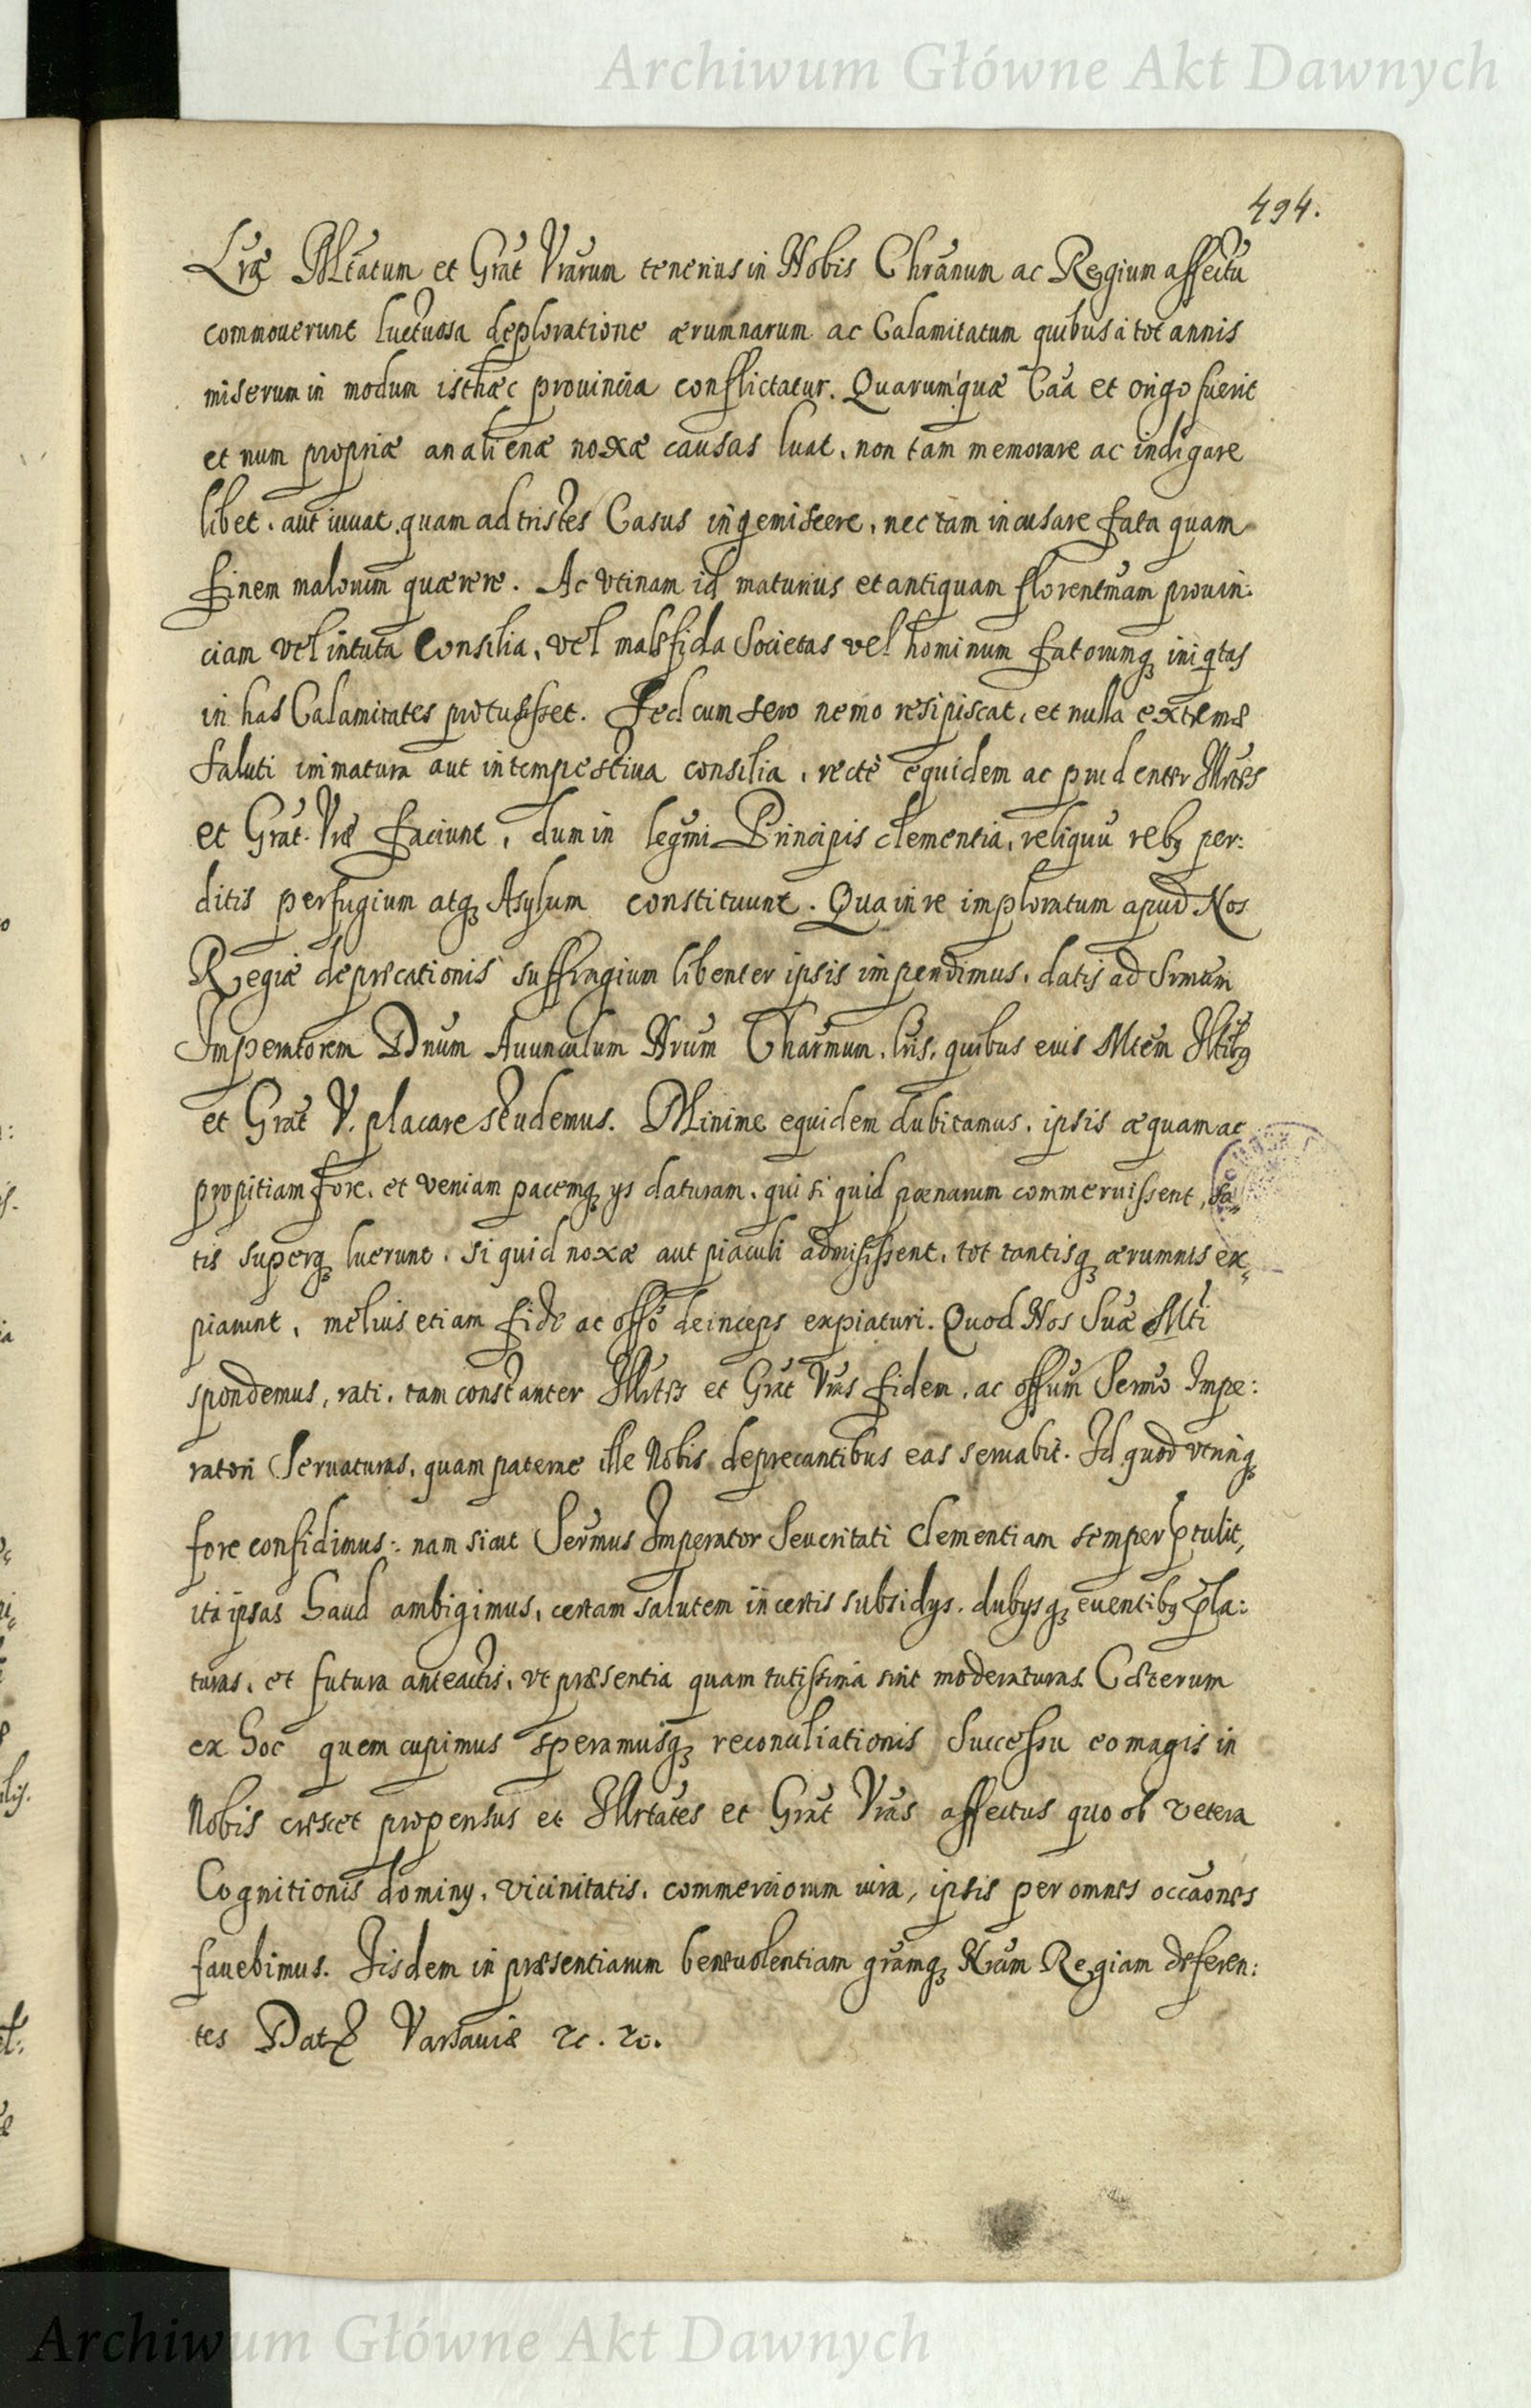 Archiwum Główne Akt Dawnych
494.
Lræ Mtatum et Grat Vrarum tenerius in Nobis Chranum ac Regium affectu
commouerunt luctuosa deploratione ærumnarum ac Calamitatum quibus à tot annis
miserum in modum isthæc prouincia conflictatur. Quarum quæ Caa et origo fuerit
et num propriæ an alienæ noxæ causas luat, non tam memorare ac indigare
libet, aut iuuat, quam ad tristes Casus ingemiscere, nec tam incusare fata quam
finem malorum quærere. Ac vtinam id maturius et antiquam florentmam prouin:
ciam vel intuta Consilia, vel malefida Societas vel hominum fatorumq iniqtas
in has Calamitates protusisset. Sed cum sero nemo resipiscat, et nulla extremæ
saluti immatura aut intempestiua consilia, rectè equidem ac prudenter
et Grat. Vræ faciunt, dum in legmi Principis clementia, reliquu rebq per:
ditis perfugium atq Asylum constituunt. Qua in re imploratum apud Nos
Regiæ deprecationis suffragium libenter ipsis impendimus, datis ad Srmum
Imperatorem Dnum Auunculum Nrum Charmum, lris, quibus euis Mtem
et Grat V. placare studemus. Minime equidem dubitamus, ipsis æquam ac
propitiam fore, et veniam pacemq ys daturam, qui si quid pœnarum commeruissent, sa
tis superq luerunt, si quid noxæ aut piaculi admisissent, tot tantisq ærumnis ex
piarunt, melius etiam fide ac offo deinceps expiaturi. Quod Nos Suæ Mti
spondemus, rati, tam constanter et Grat Vras fidem, ac offum Sermo Impe:
ratori Seruaturas, quam paterne ille Nobis deprecantibus eas seruabit. Id quod vtrinq
fore confidimus: nam sicut Sermus Imperator Seueritati Clementiam semper ptulit,
ita ipsas haud ambigimus, certam salutem incertis subsidys, dubysq euentibq pla:
turas, et futura anteactis, vt præsentia quam tutissima sint moderaturas. Cæterum
ex hoc quem cupimus speramusq reconciliationis Successu eo magis in
Nobis crescet propensus et et Grat Vras affectus quo ob vetera
Cognitionis dominy, vicinitatis, commerciorum iura, ipsis per omnes occaones
fauebimus. Iisdem in præsentiarum beneuolentiam gramq Nram Regiam deferen:
tes Dat Varsauiæ &c. &c.
Archiwum Główne Akt Dawnych